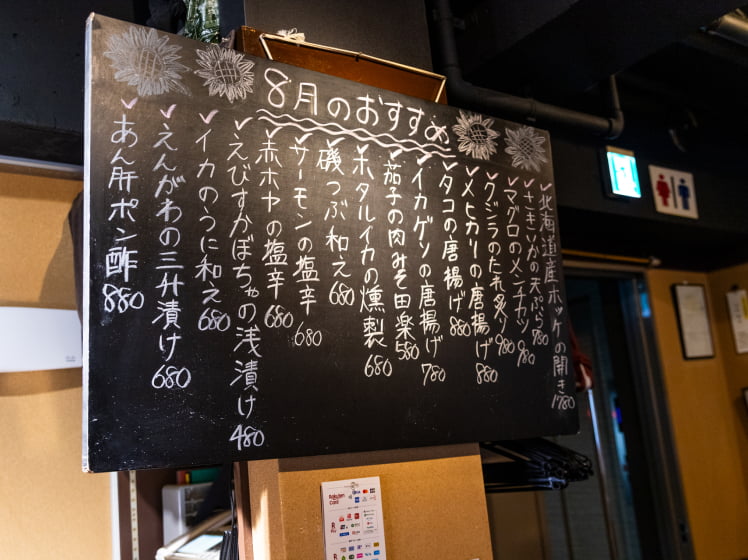 8月のおすすめ
北海道産ホッケの開き 1780
さきいかの天ぷら 780
マグロのメンチカツ 980
クジラのたれ炙り 980
メヒカリの唐揚げ 880
タコの唐揚げ 880
イカゲソの唐揚げ 780
茄子の肉みそ田楽 580
ホタルイカの燻製 680
磯つぶ和え 680
サーモンの塩辛 680
赤ホヤの塩辛 680
えびすかぼちゃの浅漬け 480
イカのうに和え 680
えんがわの三升漬け 680
あん肝ポン酢 880
Rakuten Card